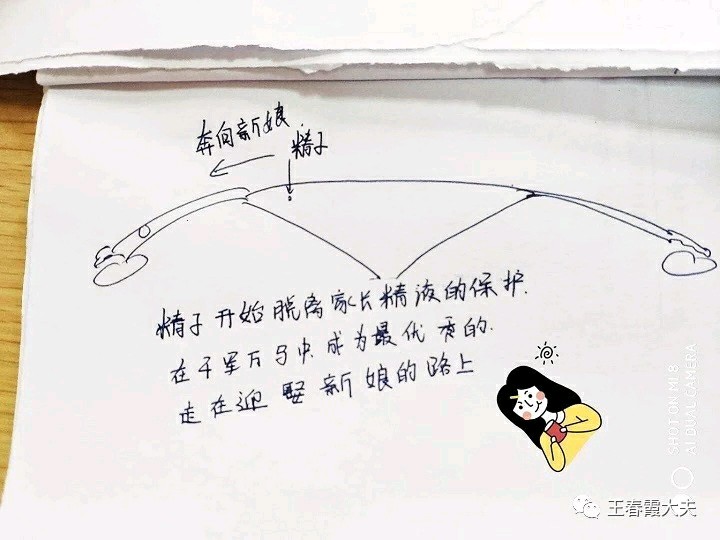 奔向新娘
精子
精子开始脱离家长精液的保护.
在千军万马中成为最优秀的.
走在迎娶新娘的路上
SHOT ON MI 8
AI DUAL CAMERA
王春霞大夫